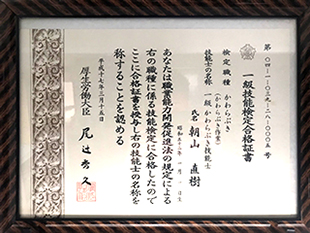 一級技能検定合格証書
検定職種 かわらぶき
(かわらぶき作業)
技能士の名称
一級かわらぶき技能士
氏名 朝山 直樹
あなたは職業能力開発促進法の規定による
右の職種に係る技能検定に合格したので
ここに合格証書を授与し右の技能士の名称を
称することを認める
平成十七年三月十五日
厚生労働大臣 尾辻秀久